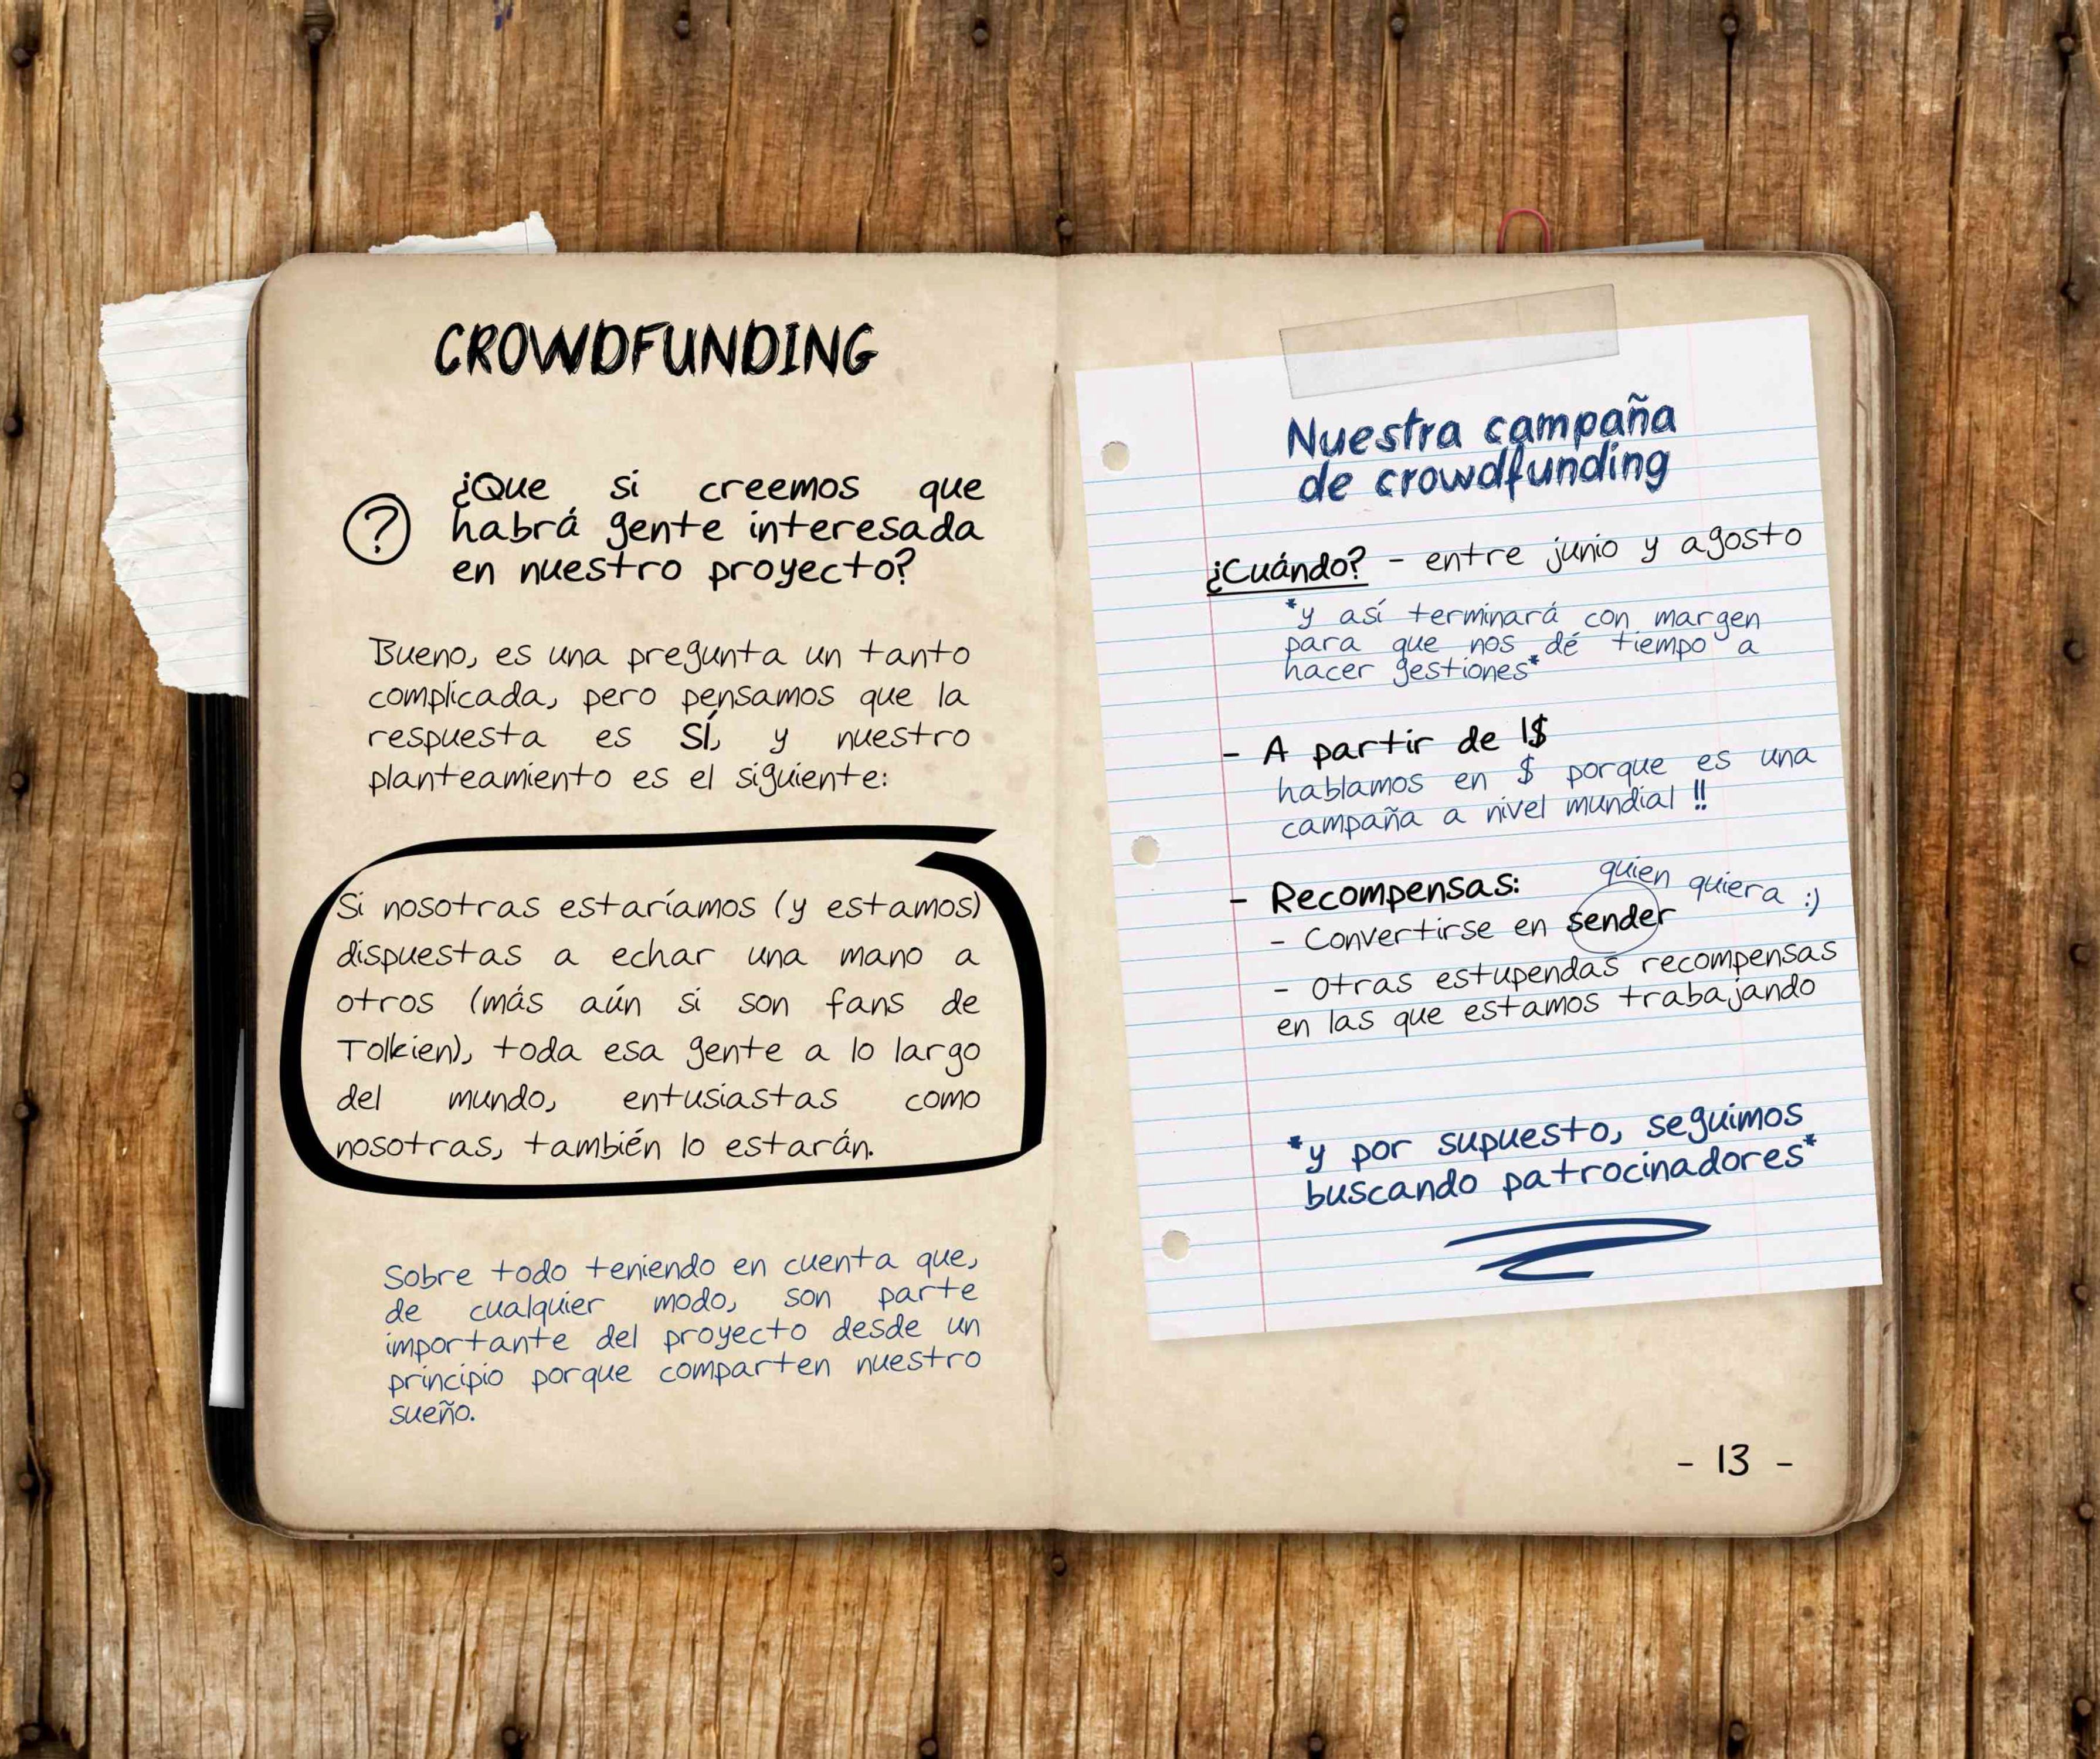 CROWDFUNDING
?
¿Que si creemos que
habrá gente interesada
en nuestro proyecto?
Bueno, es una pregunta un tanto
complicada, pero pensamos que la
respuesta es SÍ, y nuestro
planteamiento es el siguiente:
Si nosotras estaríamos (y estamos)
dispuestas a echar una mano a
otros (más aún si son fans de
Tolkien), toda esa gente a lo largo
del mundo, entusiastas como
nosotras, también lo estarán.
Sobre todo teniendo en cuenta que,
de cualquier modo, son parte
importante del proyecto desde un
principio porque comparten nuestro
sueño.
Nuestra campaña
de crowdfunding
¿Cuándo? - entre junio y agosto
*y así terminará con margen
para que nos dé tiempo a
hacer gestiones*
- A partir de 1$
hablamos en $ porque es una
campaña a nivel mundial !!
- Recompensas:
quien quiera :)
- Convertirse en sender
- Otras estupendas recompensas
en las que estamos trabajando
*y por supuesto, seguimos
buscando patrocinadores*
- 13 -